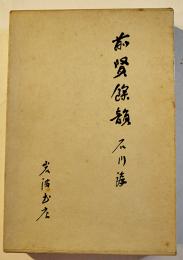 前賢餘韻
石川謙
岩波書店